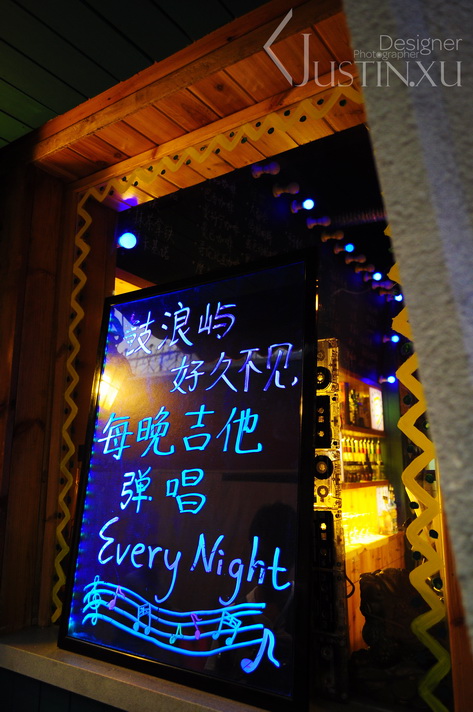 Designer
Photographer
JUSTIN.XU
鼓浪屿
好久不见,
每晚吉他
弹唱
Every Night